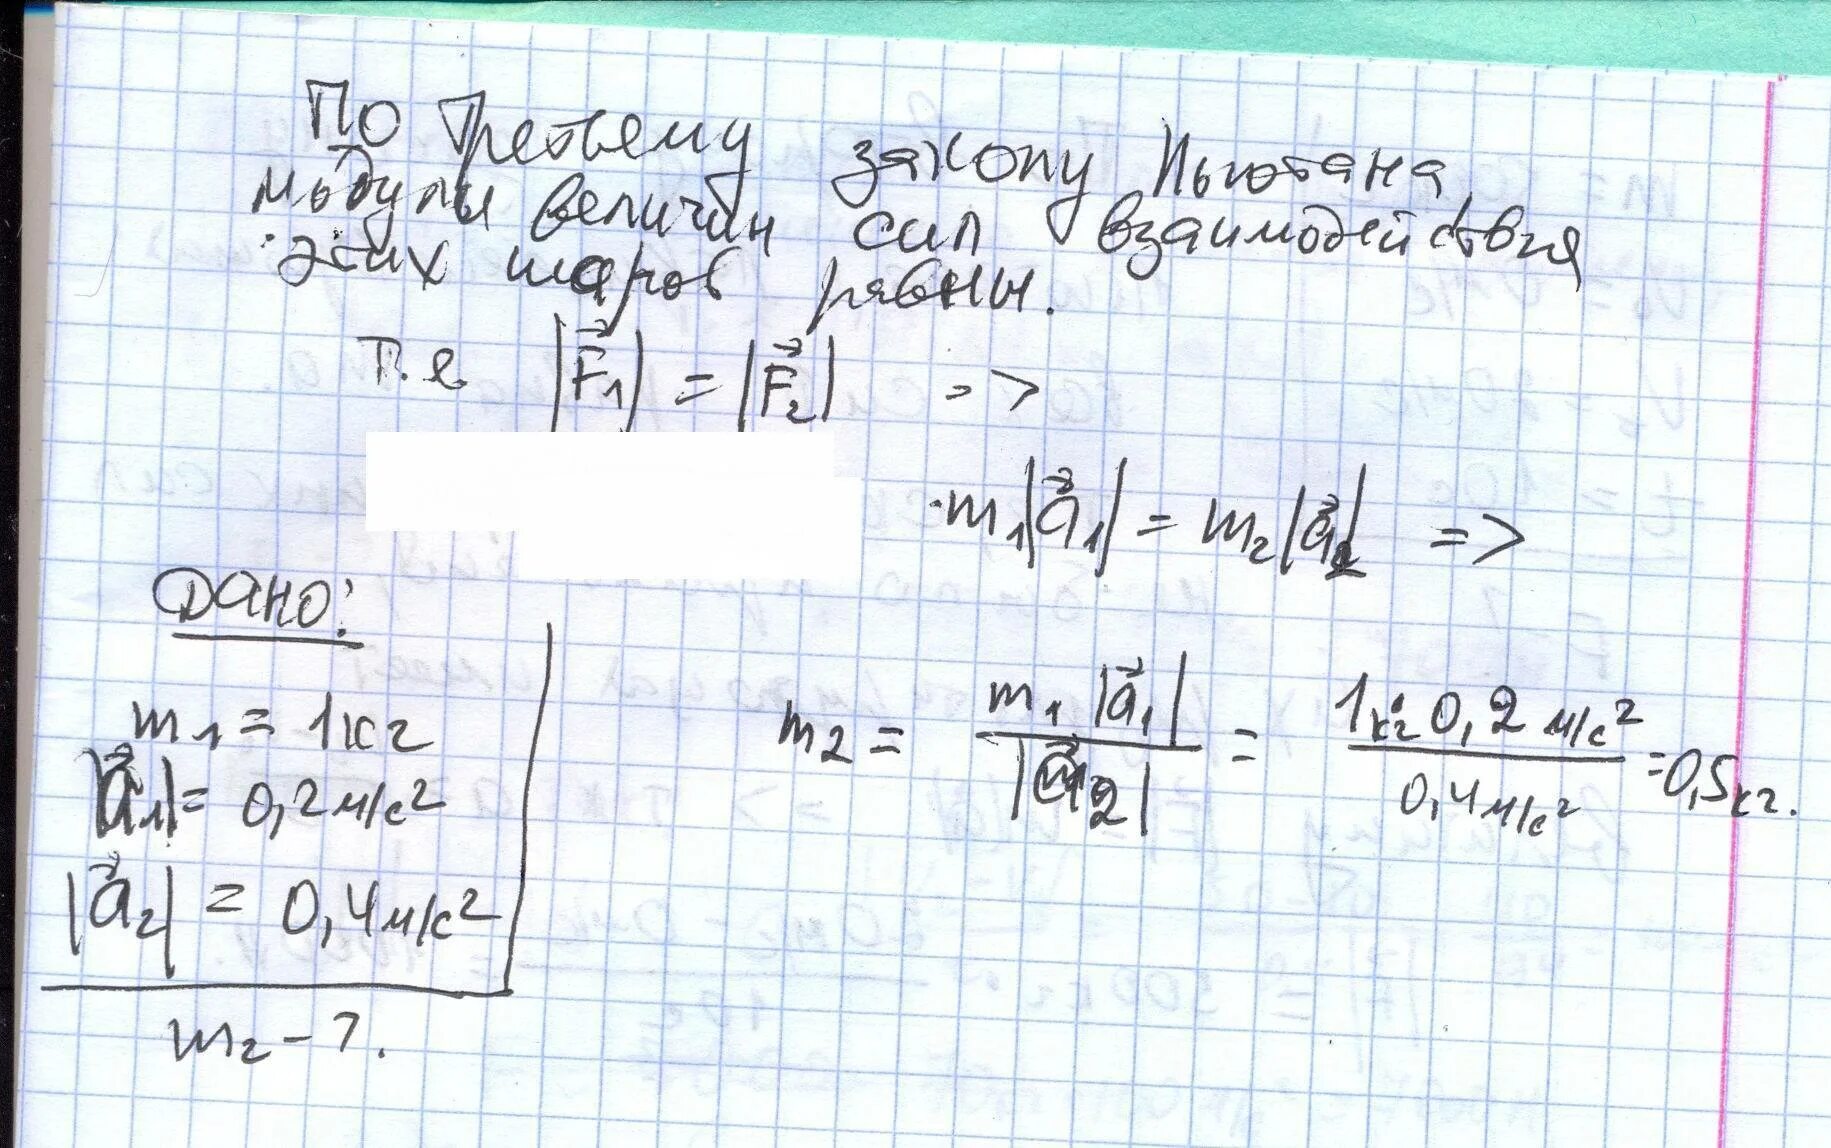 По Третьему закону Ньютона
модули величин сил взаимодействия
этих шаров равны.
т.е |F⃗₁| = |F⃗₂| =>
m₁|a⃗₁| = m₂|a⃗₂| =>
Дано:
m₁ = 1кг
|a⃗₁| = 0,2м/с²
|a⃗₂| = 0,4м/с²
m₂ - ?.
m₂ = m₁|a⃗₁| / |a⃗₂| = 1кг·0,2 м/с² / 0,4м/с² = 0,5кг.